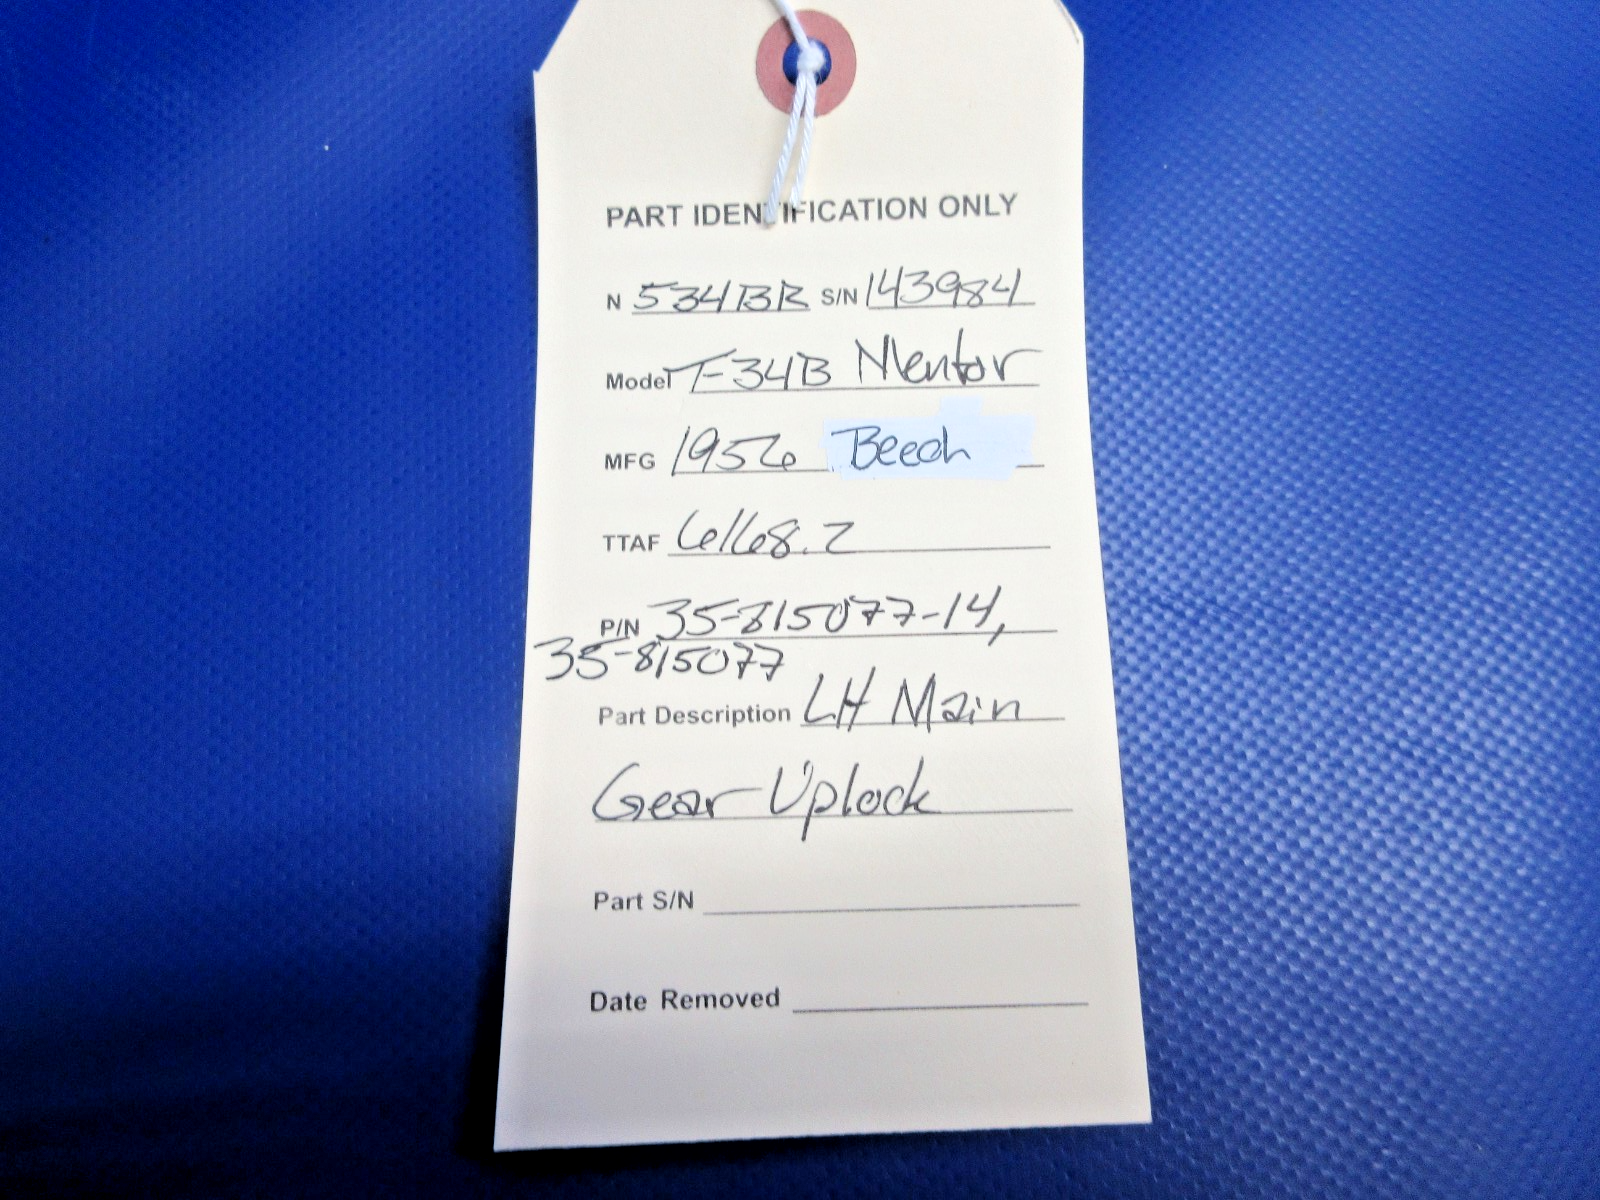 PART IDENTIFICATION ONLY
N 534BR S/N 143984
Model T-34B Mentor
MFG 1956 Beech
TTAF 6168.2
P/N 35-815077-14,
35-815077
Part Description LH Main
Gear Uplock
Part S/N
Date Removed